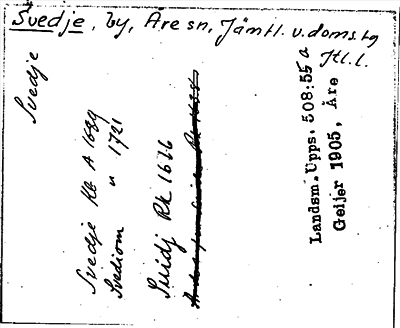 Svedje, by, Åre sn, Jämtl. v. doms.hg
Jtl. l.
Svedje
Svedje Kb A 1689
Svediom " 1721
Suidj RR 1616
Landsm. Upps. 508:55 a
Geijer 1905, Åre